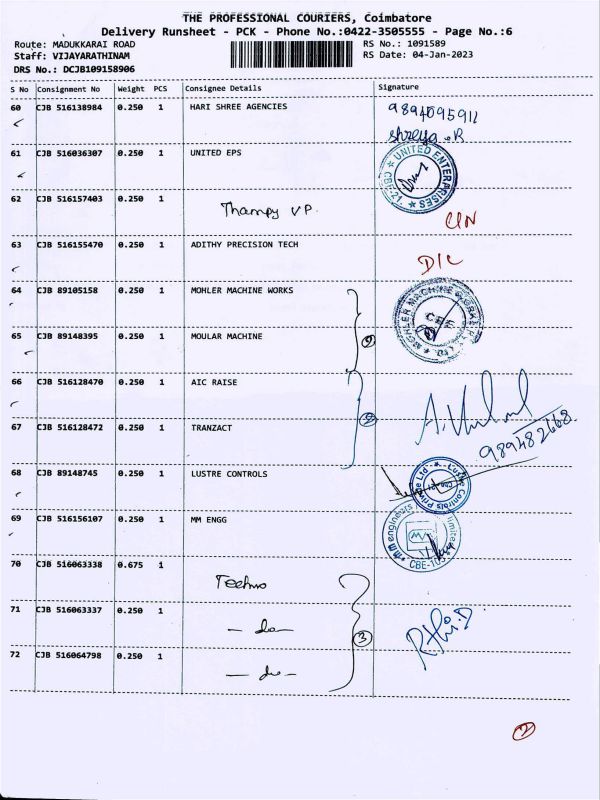 THE PROFESSIONAL COURIERS, Coimbatore
Delivery Runsheet - PCK - Phone No.:0422-3505555 - Page No.:6
Route: MADUKKARAI ROAD
RS No.: 1091589
Staff: VIJAYARATHINAM
RS Date: 04-Jan-2023
DRS No.: DCJB109158906
S No Consignment No Weight PCS Consignee Details Signature
60 CJB 516138984 0.250 1 HARI SHREE AGENCIES 9894095911
Shreya .R
61 CJB 516036307 0.250 1 UNITED EPS
★ UNITED ENTERPRISES ★ CBE-21.
62 CJB 516157403 0.250 1 Thampy V P.
63 CJB 516155470 0.250 1 ADITHY PRECISION TECH D/L
64 CJB 89105158 0.250 1 MOHLER MACHINE WORKS
MOHLER MACHINE WORKS
CBE
65 CJB 89148395 0.250 1 MOULAR MACHINE
66 CJB 516128470 0.250 1 AIC RAISE
67 CJB 516128472 0.250 1 TRANZACT
68 CJB 89148745 0.250 1 LUSTRE CONTROLS
Lustre Controls Private Ltd
69 CJB 516156107 0.250 1 MM ENGG
mm engineers limited
CBE-105
70 CJB 516063338 0.675 1 Techno
71 CJB 516063337 0.250 1 - do -
3
72 CJB 516064798 0.250 1 - do -